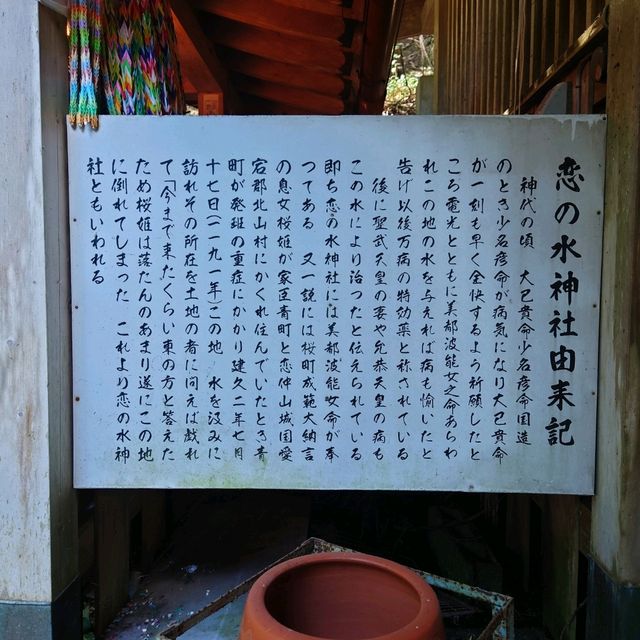 恋の水神社由来記
神代の頃 大己貴命少名彦命国造
のとき少名彦命が病気になり大己貴命
が一刻も早く全快するよう祈願したと
ころ電光とともに美都波能女之命あらわ
れこの地の水を与えれば病も愉いたと
告げ以後万病の特効薬と称されている
後に聖武天皇の妻や允恭天皇の病も
この水により治つたと伝えられている
即ち恋の水神社には美都波能女命が奉
つてある 又一説には桜町成範大納言
の息女桜姫が家臣青町と恋仲山城国愛
宕郡北山村にかくれ住んでいたとき青
町が発班の重症にかかり建久二年七月
十七日(一一九一年)この地 水を汲みに
訪れその所在を土地の者に問えば戯れ
て「今まで来た」くらい東の方と答えた
ため桜姫は落たんのあまり遂にこの地
に倒れてしまった これより恋の水神
社ともいわれる